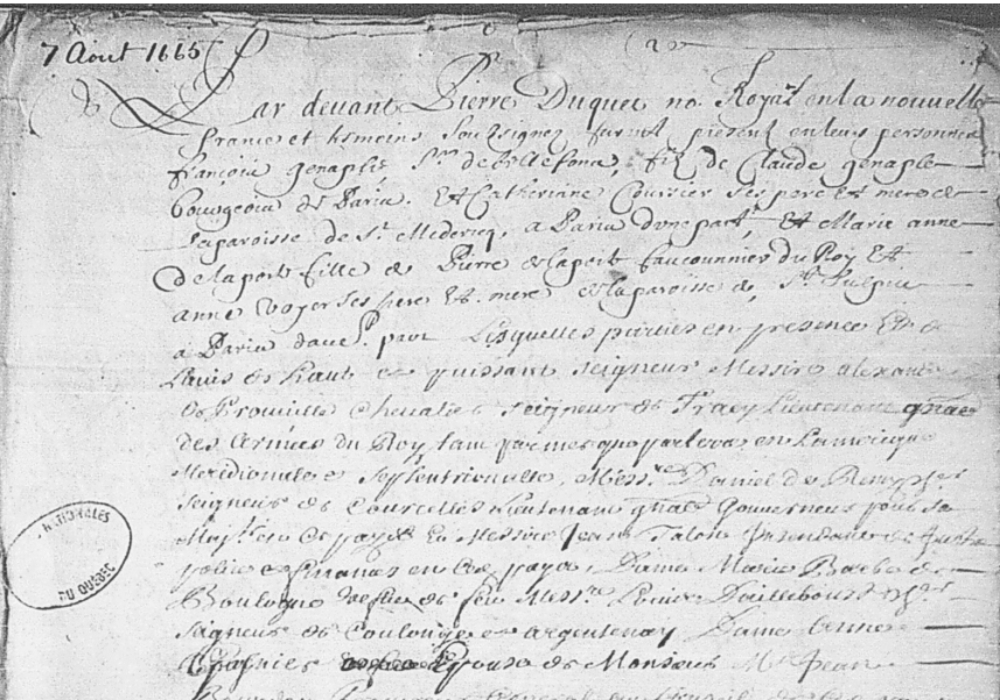 7 Aout 1665
Par devant Pierre Duquet no. Royal en la nouvelle
france et tesmoins soussignez furent present en leurs personnes
françois genaple Sr de bellefond, filz de Claude genaple
bourgeois de Paris. Et Catherine Coursier ses pere Et mere de
la paroisse de St. Medericq, a Paris dune part, Et Marie anne
de la porte fille de Pierre de la porte fauconnier du Roy Et
anne voyer ses pere Et mere de la paroisse de St Sulpice
a Paris dau. part Lesquelles parties en presence Et de
Lavis de haut et puissant seigneur Messire alexandre
de Prouville Chevalier seigneur de Tracy Lieutenant gnal
des Armées du Roy tant par mer que par terre en Lamerique
Meridionale et septentrionalle, Mess.re Daniel de Remy
seigneur de Courcelles Lieutenant gnal Gouverneur pour sa
Maj.té en ce pays Et Messire Jean Talon Intendant de justice
police et finances en ce pays, Dame Marie Barbe de
Boulogne veufve de feu Mess.re Louis Dailleboust
seigneur de Coulonge et argentenay Dame Anne
Gasnier Espouse de Monsieur Me Jean
Bourdon Procureur General au Conseil
NATIONALES
DU QUÉBEC